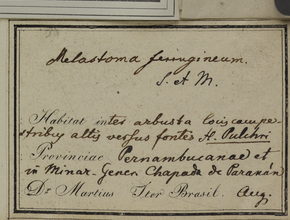 Melastoma ferrugineum.
S. et M.
Habitat inter arbusta locis campe-
stribus altis versus fontes fl. Pulchri
Provinciae Pernambucanae et
in Minar. Gener. Chapada de Paranán
Dr Martius Iter Brasil. Aug.